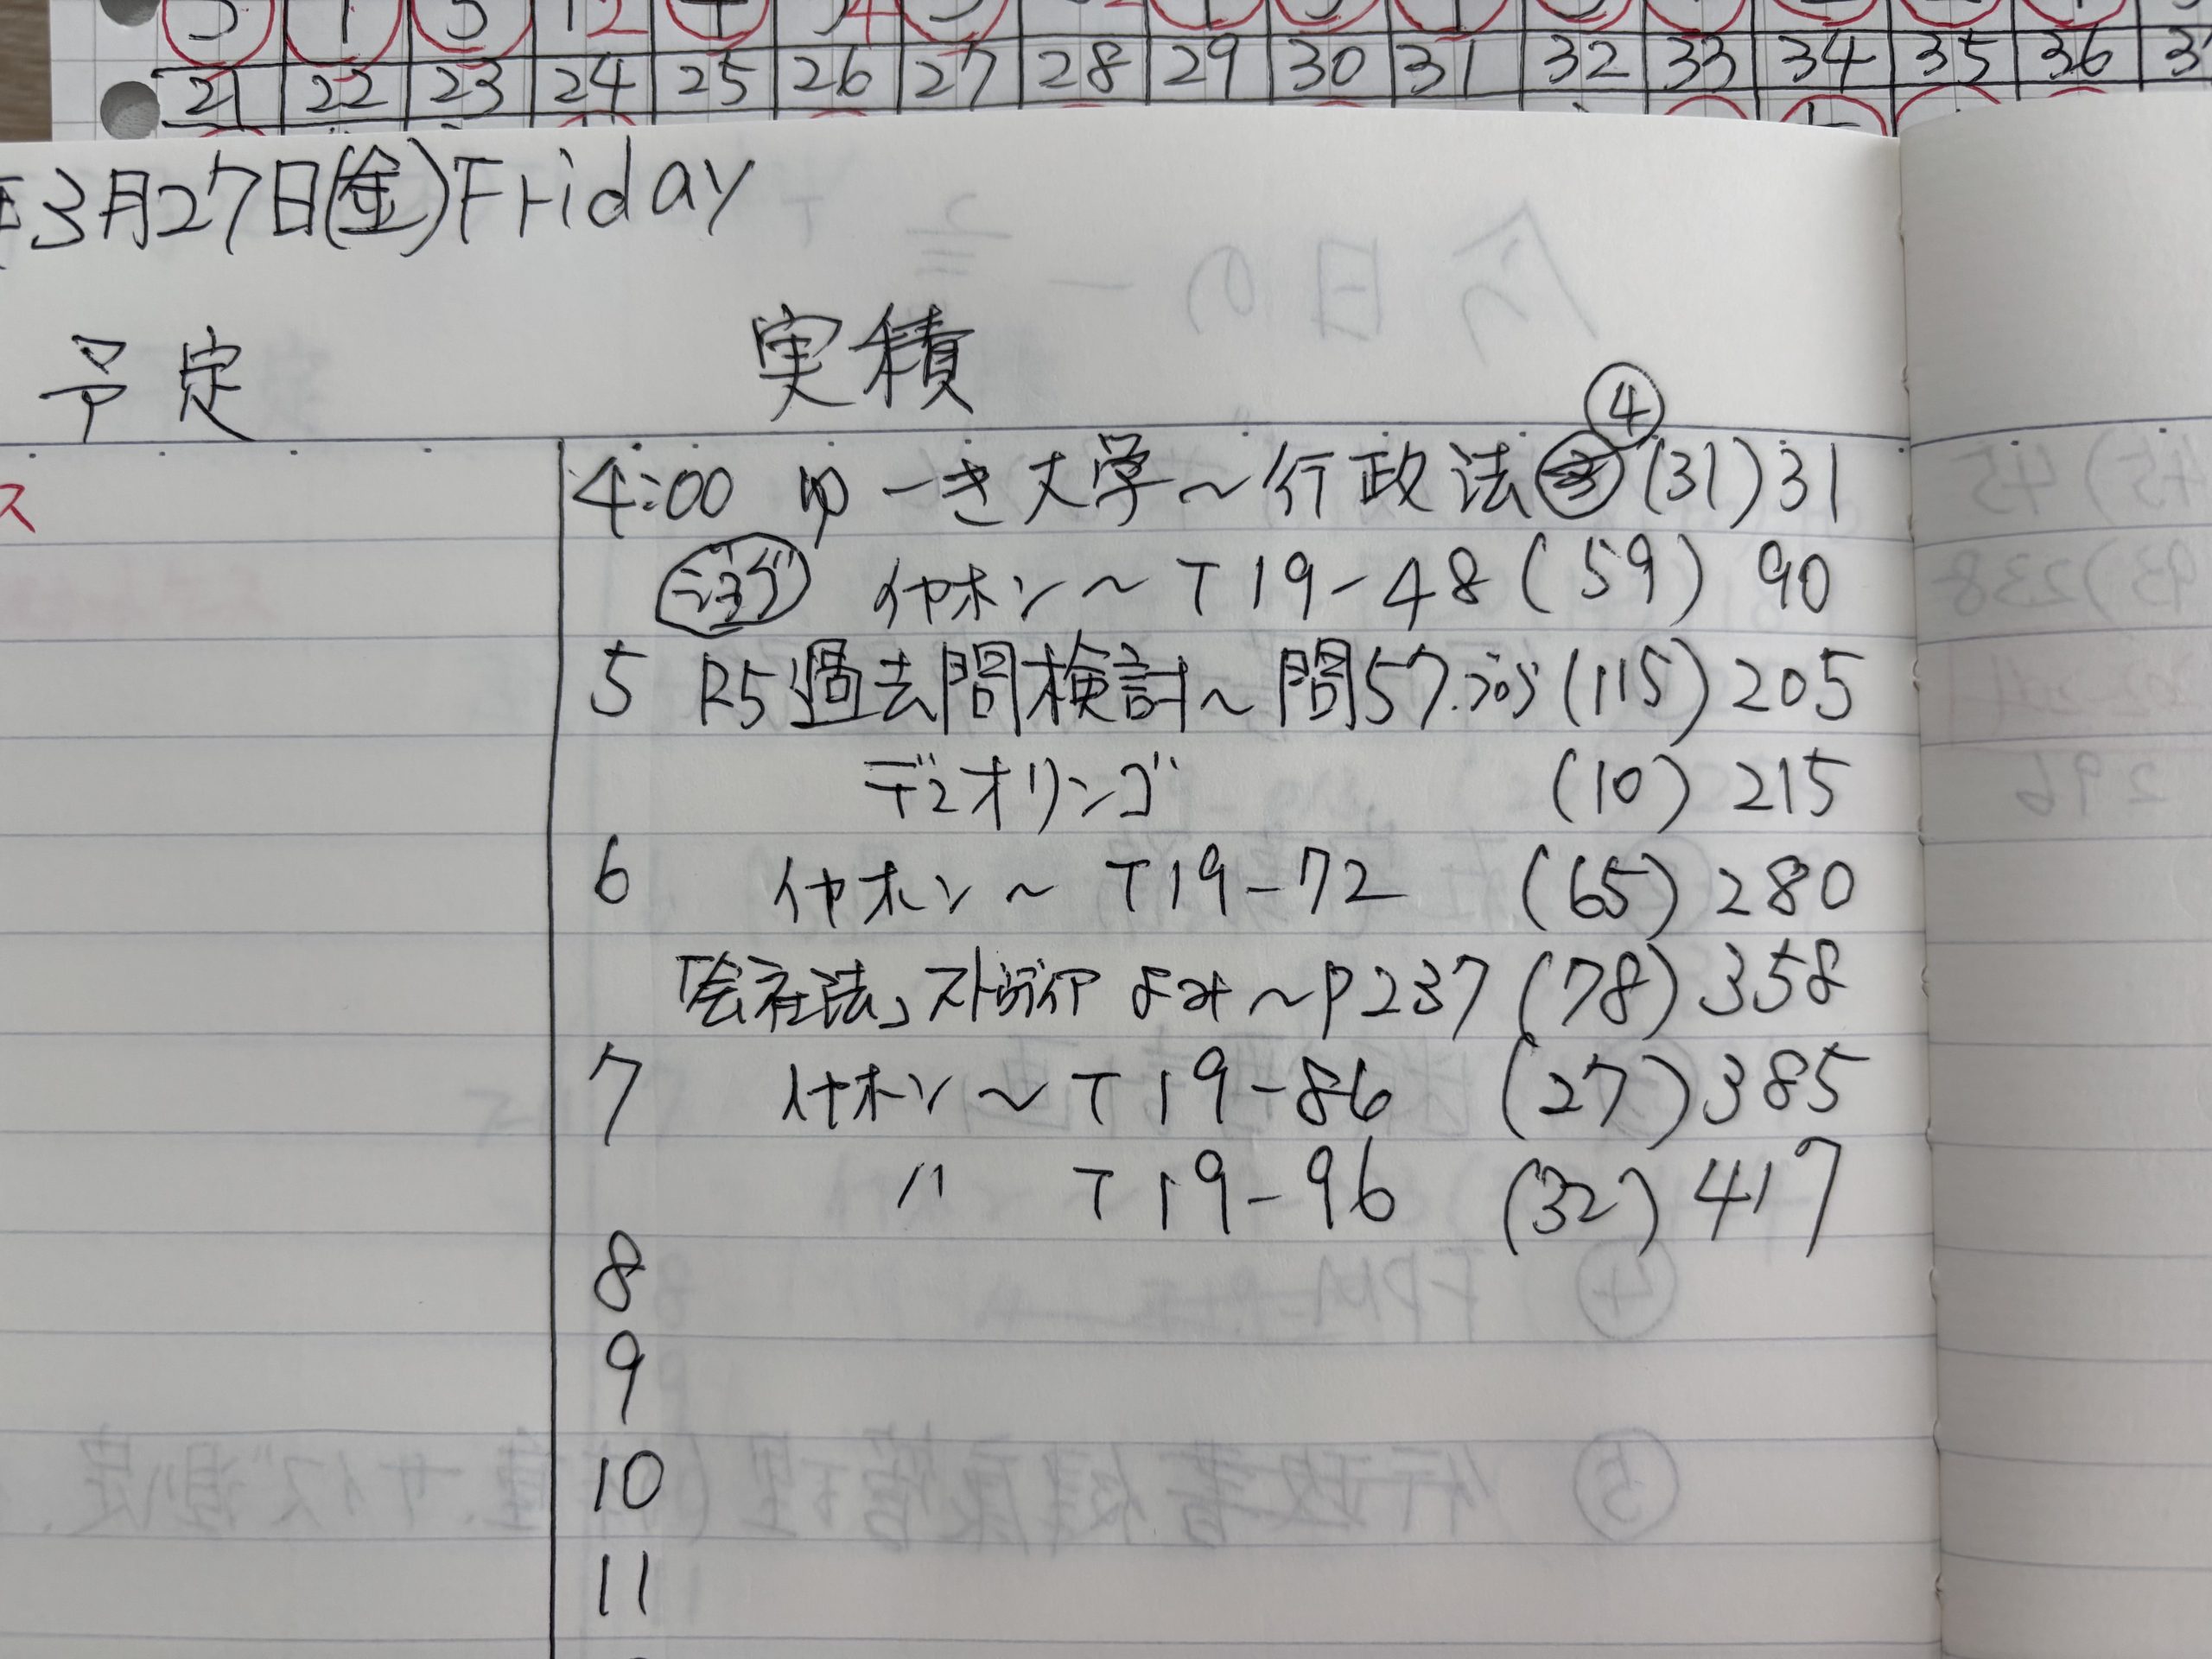 21 22 23 24 25 26 27 28 29 30 31 32 33 34 35 36
3月27日(金)Friday
予定 実積
④
4:00 ゆーき大学〜行政法 (31)31
イヤホン〜T19-48(59) 90
5 R5過去問検討〜問57.(115)205
ディオリンゴ (10)215
6 イヤホン〜T19-72 (65)280
「会社法」ストゥディア よみ〜P237(78)358
7 イヤホン〜T19-86 (27)385
〃 T19-96 (32)417
8
9
10
11